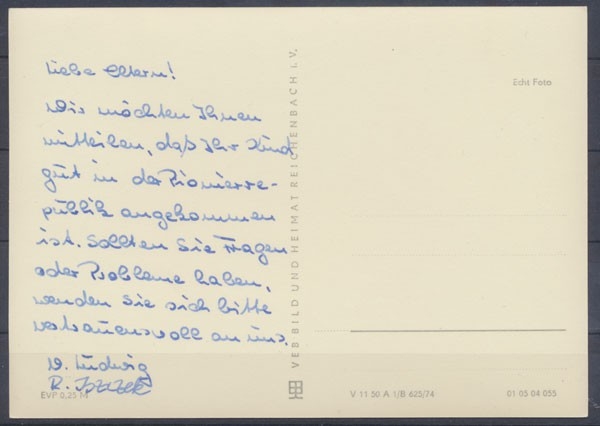 Liebe Eltern!
Wir möchten Ihnen
mitteilen, daß Ihr Kind
gut in der Pionierre-
publik angekommen
ist. Sollten Sie Fragen
oder Probleme haben,
wenden Sie sich bitte
vertrauensvoll an uns.
D. Ludwig
R.
EVP 0,25 M
VEB BILD UND HEIMAT REICHENBACH I. V.
Echt Foto
V 11 50 A 1/B 625/74
01 05 04 055